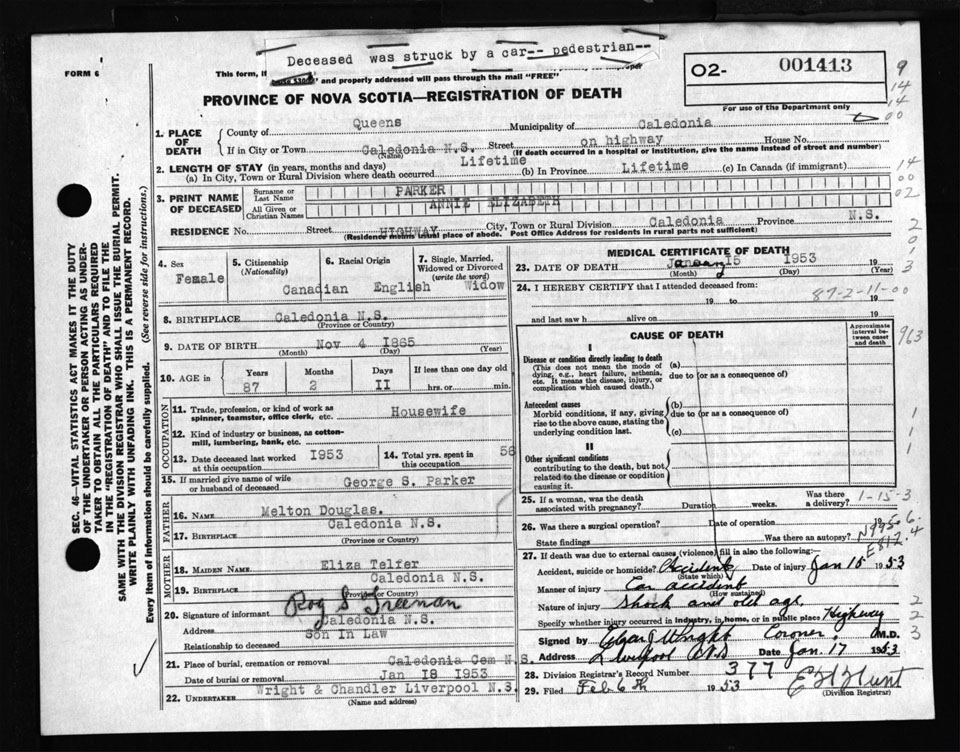 Deceased was struck by a car-- pedestrian--
FORM 6
This form, if
and properly addressed will pass through the mail "FREE"
O2- 001413
For use of the Department only
PROVINCE OF NOVA SCOTIA—REGISTRATION OF DEATH
1. PLACE OF DEATH
County of Queens Municipality of Caledonia
If in City or Town Caledonia N.S. Street on highway House No.
(Name) (If death occurred in a hospital or institution, give the name instead of street and number)
2. LENGTH OF STAY (in years, months and days)
(a) In City, Town or Rural Division where death occurred Lifetime (b) In Province Lifetime (c) In Canada (if immigrant)
3. PRINT NAME OF DECEASED
Surname or Last Name PARKER
All Given or Christian Names ANNIE ELIZABETH
RESIDENCE No. Street HIGHWAY City, Town or Rural Division Caledonia Province N.S.
(Residence means usual place of abode. Post Office Address for residents in rural parts not sufficient)
4. Sex Female
5. Citizenship (Nationality) Canadian
6. Racial Origin English
7. Single, Married, Widowed or Divorced (write the word) Widow
8. BIRTHPLACE Caledonia N.S.
(Province or Country)
9. DATE OF BIRTH Nov 4 I865
(Month) (Day) (Year)
10. AGE in Years Months Days If less than one day old
87 2 II hrs. or min.
OCCUPATION
11. Trade, profession, or kind of work as spinner, teamster, office clerk, etc. Housewife
12. Kind of industry or business, as cotton-mill, lumbering, bank, etc.
13. Date deceased last worked at this occupation I953
14. Total yrs. spent in this occupation 56
15. If married give name of wife or husband of deceased George S. Parker
FATHER
16. NAME Melton Douglas.
17. BIRTHPLACE Caledonia N.S.
(Province or Country)
MOTHER
18. MAIDEN NAME Eliza Telfer
19. BIRTHPLACE Caledonia N.S.
(Province or Country)
20. Signature of informant Roy S Freeman
Address Caledonia N.S.
Relationship to deceased Son In Law
21. Place of burial, cremation or removal Caledonia Cem N.S.
Date of burial or removal Jan I8 I953
22. UNDERTAKER Wright & Chandler Liverpool N.S.
(Name and address)
MEDICAL CERTIFICATE OF DEATH
23. DATE OF DEATH January 15 I953
(Month) (Day) (Year)
24. I HEREBY CERTIFY that I attended deceased from:
19 to 19
87-2-11-00
and last saw h alive on 19
CAUSE OF DEATH
Approximate interval between onset and death
I
Disease or condition directly leading to death (a)
(This does not mean the mode of dying, e.g., heart failure, asthenia, etc. It means the disease, injury, or complication which caused death.)
due to (or as a consequence of)
Antecedent causes (b)
Morbid conditions, if any, giving rise to the above cause, stating the underlying condition last.
due to (or as a consequence of)
(c)
II
Other significant conditions
contributing to the death, but not related to the disease or condition causing it.
25. If a woman, was the death associated with pregnancy? Duration weeks. Was there a delivery?
1-15-3
26. Was there a surgical operation? Date of operation 19
State findings Was there an autopsy?
27. If death was due to external causes (violence) fill in also the following:—
Accident, suicide or homicide? Accident Date of injury Jan 15 1953
(State which)
Manner of injury Car accident
(How sustained)
Nature of injury Shock and old age
Specify whether injury occurred in industry, in home, or in public place Highway
Signed by Edgar J Wright Coroner M.D.
Address Liverpool N.S Date Jan. 17 1953
28. Division Registrar's Record Number 377
29. Filed Feb 6th 1953
(Division Registrar)
SEC. 46—VITAL STATISTICS ACT MAKES IT THE DUTY
OF THE UNDERTAKER OR PERSON ACTING AS UNDER-
TAKER TO OBTAIN ALL THE PARTICULARS REQUIRED
IN THE "REGISTRATION OF DEATH" AND TO FILE THE
SAME WITH THE DIVISION REGISTRAR WHO SHALL ISSUE THE BURIAL PERMIT.
WRITE PLAINLY WITH UNFADING INK. THIS IS A PERMANENT RECORD.
Every item of Information should be carefully supplied. (See reverse side for instructions.)
9
14
14
00
14
00
02
2
0
1
3
963
1
1
2
2
3